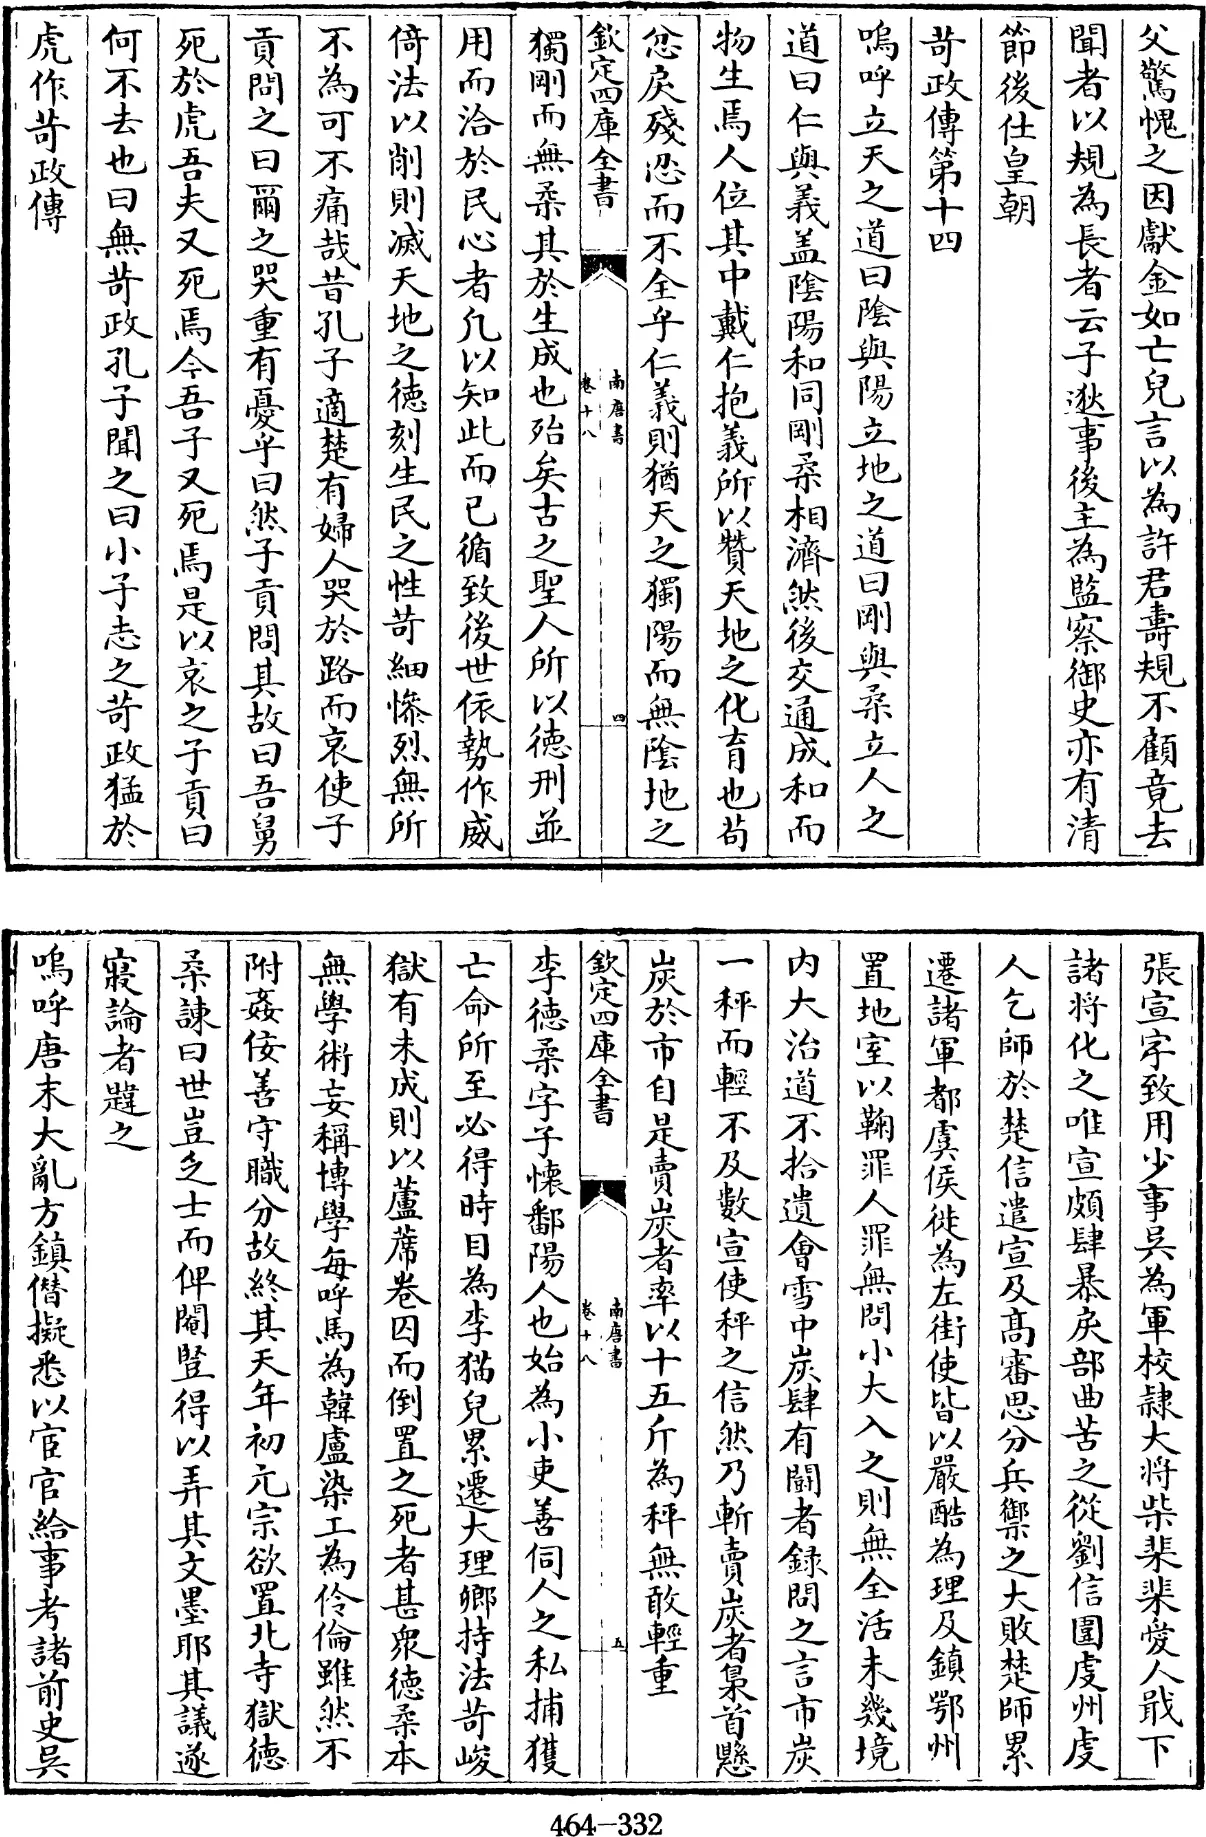 父驚愧之因獻金如亡兒言以為許君壽規不顧竟去
聞者以規為長者云子逖事後主為監察御史亦有清
節後仕皇朝
苛政傳第十四
嗚呼立天之道曰陰與陽立地之道曰剛與柔立人之
道曰仁與義盖陰陽和同剛柔相濟然後交通成和而
物生焉人位其中戴仁抱義所以贊天地之化育也苟
忿戾殘忍而不全乎仁義則猶天之獨陽而無陰地之
欽定四庫全書
南唐書
卷十八
四
獨剛而無柔其於生成也殆矣古之聖人所以德刑並
用而洽於民心者凡以知此而已循致後世依勢作威
倚法以削則滅天地之德刻生民之性苛細慘烈無所
不為可不痛哉昔孔子適楚有婦人哭於路而哀使子
貢問之曰爾之哭重有憂乎曰然子貢問其故曰吾舅
死於虎吾夫又死焉今吾子又死焉是以哀之子貢曰
何不去也曰無苛政孔子聞之曰小子志之苛政猛於
虎作苛政傳
張宣字致用少事吳為軍校隷大將柴再用再用愛人戢下
諸將化之唯宣頗肆暴戾部曲苦之從劉信圍虔州虔
人乞師於楚信遣宣及高審思分兵禦之大敗楚師累
遷諸軍都虞侯徙為左街使皆以嚴酷為理及鎮鄂州
置地室以鞠罪人罪無問小大入之則無全活未幾境
内大治道不拾遺會雪中炭肆有鬭者録問之言市炭
一秤而輕不及數宣使秤之信然乃斬賣炭者梟首懸
炭於市自是賣炭者率以十五斤為秤無敢輕重
欽定四庫全書
南唐書
卷十八
五
李德柔字子懷鄱陽人也始為小吏善伺人之私捕獲
亡命所至必得時目為李猫兒累遷大理卿持法苛峻
獄有未成則以蘆蓆卷囚而倒置之死者甚衆德柔本
無學術妄稱博學每呼馬為韓盧染工為伶倫雖然不
附姦佞善守職分故終其天年初元宗欲置北寺獄德
柔諫曰世豈乏士而俾閹豎得以弄其文墨耶其議遂
寢論者韙之
嗚呼唐末大亂方鎮僭擬悉以宦官給事考諸前史吳
464-332